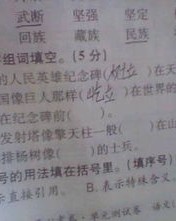 武断 坚强 坚定
回族 藏族 民族
组词填空。(5分)
的人民英雄纪念碑(树立)在天
国像巨人那样(屹立)在世界的
在纪念碑前( )。
发射塔像擎天柱一般( )在山
排杨树像( )的士兵。
号的用法填在括号里。(填序号)
示直接引用。 B.表示特殊含义
单元测试卷 语文